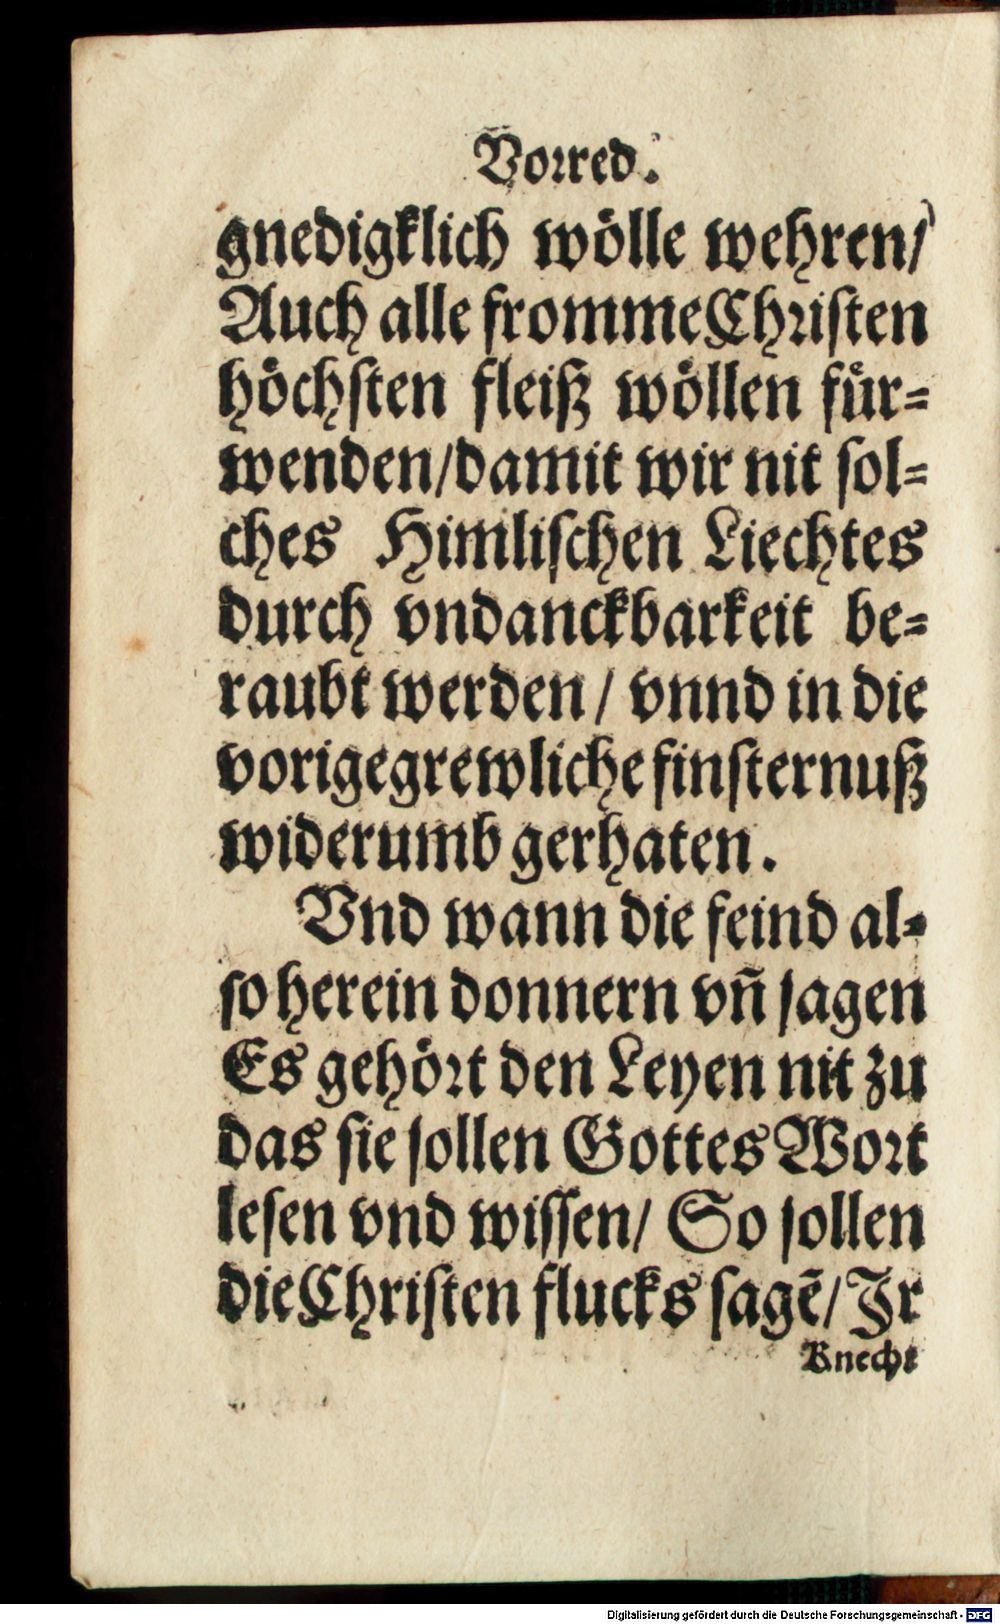 Vorred.
gnedigklich wölle wehren/
Auch alle fromme Christen
höchsten fleiß wöllen für=
wenden/damit wir nit sol=
ches Himlischen Liechtes
durch vndanckbarkeit be=
raubt werden/ vnnd in die
vorige grewliche finsternuß
widerumb gerhaten.
Vnd wann die feind al=
so herein donnern vñ sagen
Es gehört den Leyen nit zu
das sie sollen Gottes Wort
lesen vnd wissen/ So sollen
die Christen flucks sagẽ/ Jr
Knecht
Digitalisierung gefördert durch die Deutsche Forschungsgemeinschaft - DFG